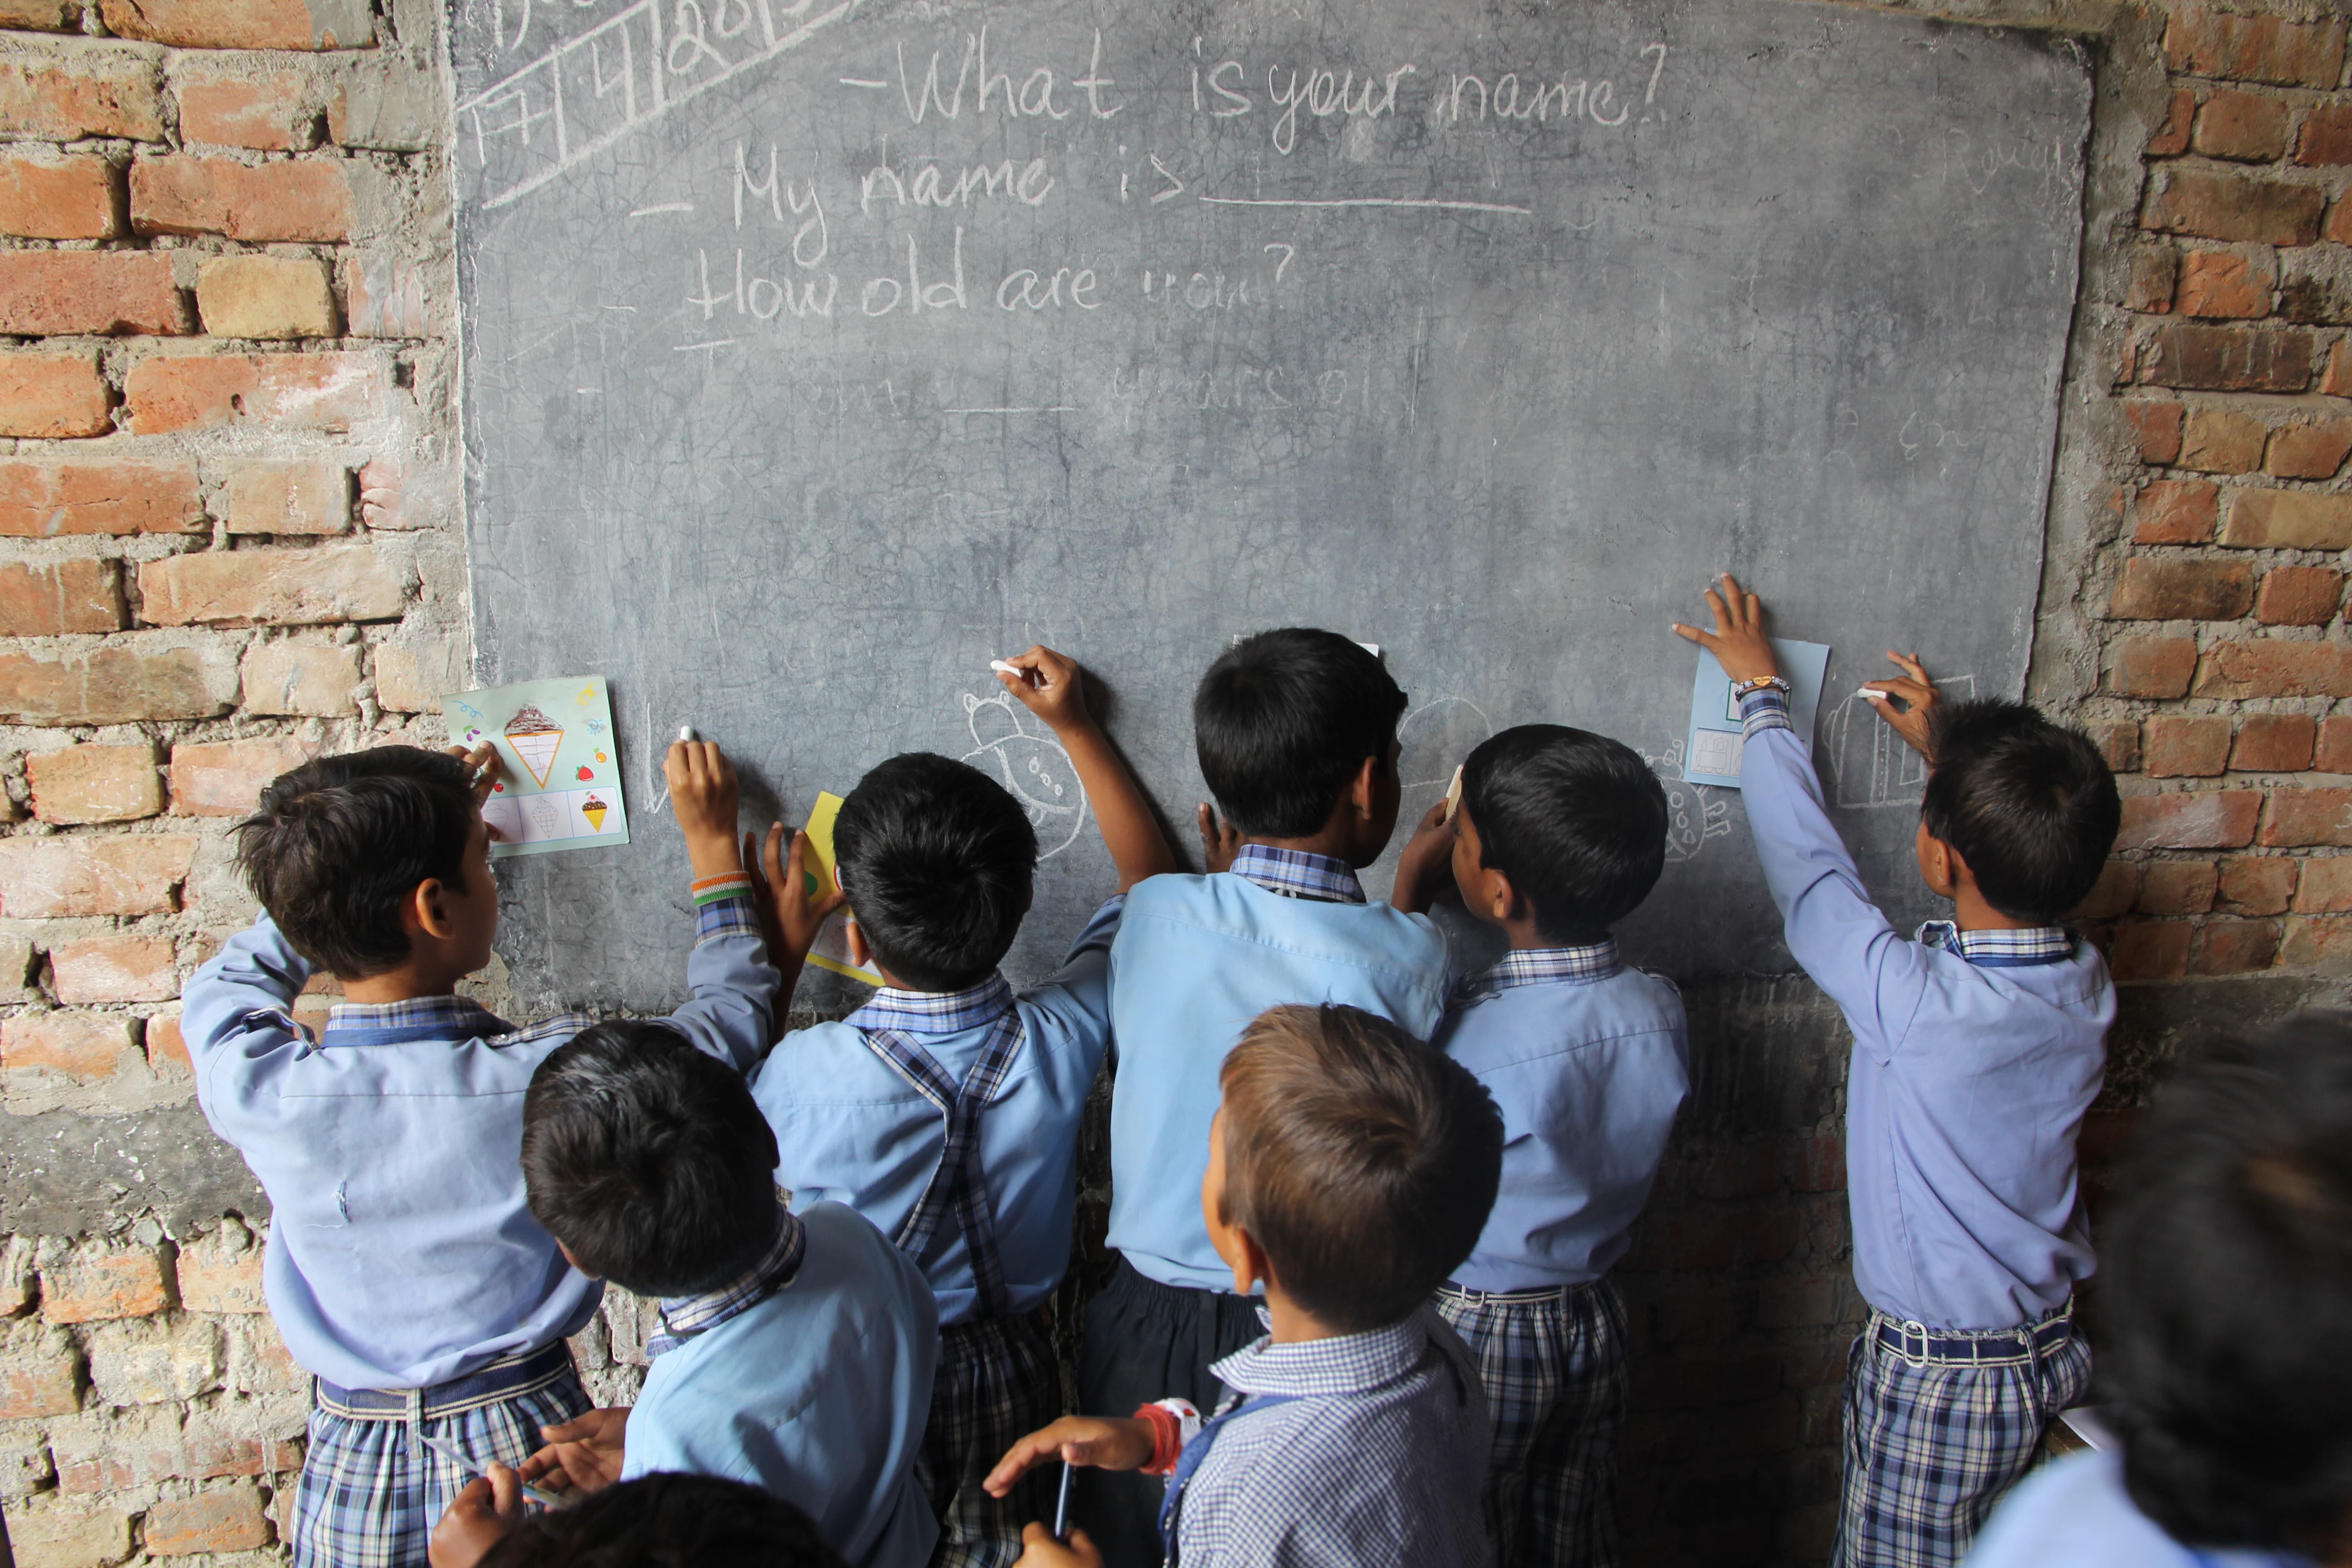 17/4/201
- What is your name?
- My name is ________
- How old are you?
years